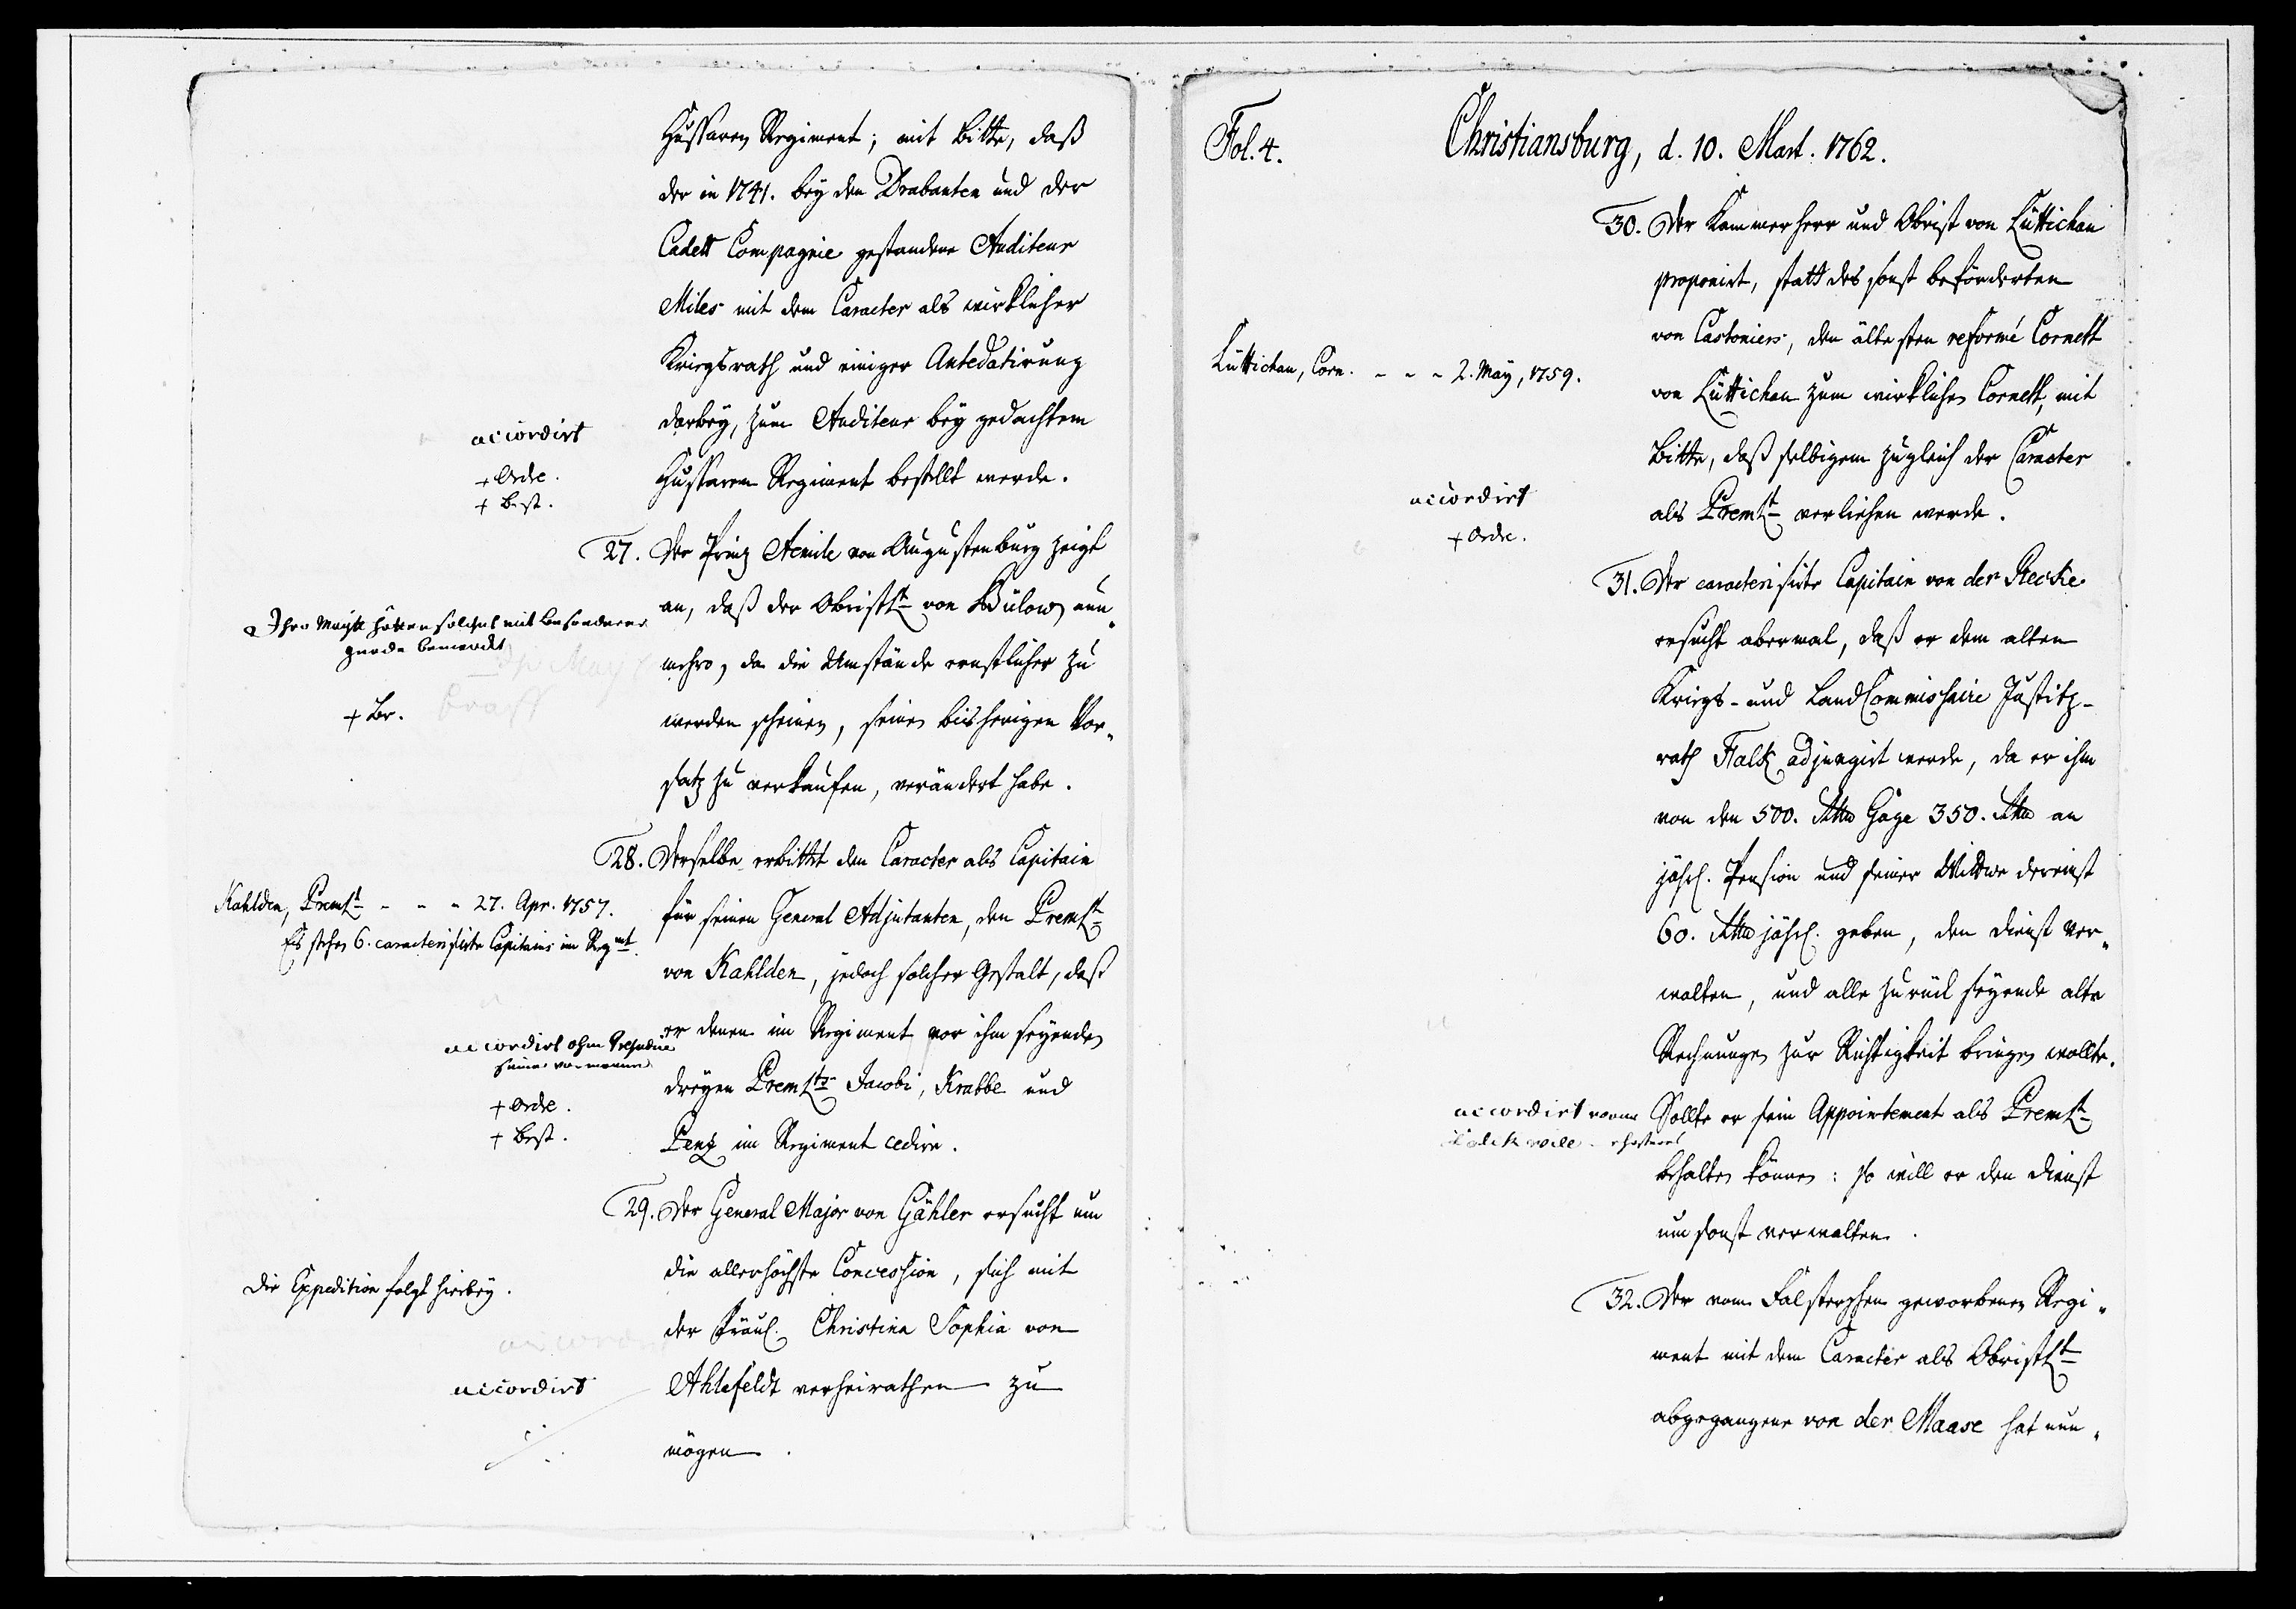 Hussaren Regiment; mit Bitte, daß
der in 1741. bey den Drabanten und der
Cadett Compagnie gestandene Auditeur
Miles mit dem Caracter als wirklicher
Kriegsrath und einiger Antedatirung
darbey, zum Auditeur bey gedachtem
Hussaren Regiment bestellt werde.
accordirt
+ Ordre.
+ Best.
27. Der Prinz Aemile von Augustenburg zeigt
an, daß der Obristlt von Bülow nun„
mehro, da die Umstände ernstlicher zu
werden scheinen, seinen bisherigen Vor„
satz zu verkaufen, verändert habe.
Ihro Maystt hätten solches mit besonderer
gnade bemerckt
+ Br.
28. Derselbe erbittet den Caracter als Capitain
für seinen General Adjutanten, den Premlt
von Kahlden, jedoch solcher Gestalt, daß
er denen im Regiment vor ihm seyenden
dreyen Premlts Jacobi, Krabbe und
Penz im Regiment cedire.
Kahlden, Premlt - - - 27. Apr. 1757.
Es stehen 6. caracterisirte Capitains im Regmt.
accordirt ohne Prejudice
seiner vormänner
+ Ordre.
+ Best.
29. Der General Major von Gähler ersucht um
die allerhöchste Concession, sich mit
der Fräul. Christina Sophia von
Ahlefeldt verheirathen zu
mögen.
Die Expedition folgt hierbey.
accordirt
Fol. 4.
Christiansburg, d. 10. Mart. 1762.
30. Der Kammerherr und Obrist von Lüttichau
proponirt, statt des sonst beförderten
von Castoniers, den ältesten reformé Cornett
von Lüttichau zum wirklichen Cornett, mit
Bitte, daß selbigem zugleich der Caracter
als Premlt verliehen werde.
Lüttichau, Corn. - - - 2. May, 1759.
accordirt
+ Ordre.
31. Der caracterisirte Capitain von der Recke
ersucht abermal, daß er dem alten
Kriegs- und LandCommissaire Justitz-
rath Falk adjungirt werde, da er ihm
von den 500. Rthlr Gage 350. Rthlr an
jährl. Pension und seiner Wittwe dereinst
60. Rthlr jährl. geben, den Dienst ver„
walten, und alle zurück seyende alte
Rechnungen zur Richtigkeit bringen wollte.
Sollte er sein Appointement als Premlt
behalten können: so will er den Dienst
umsonst verwalten.
accordirt wenn
Falck will
32. Der vom Falsterschen geworbenen Regi„
ment mit dem Caracter als Obristlt
abgegangene von der Maase hat nun„